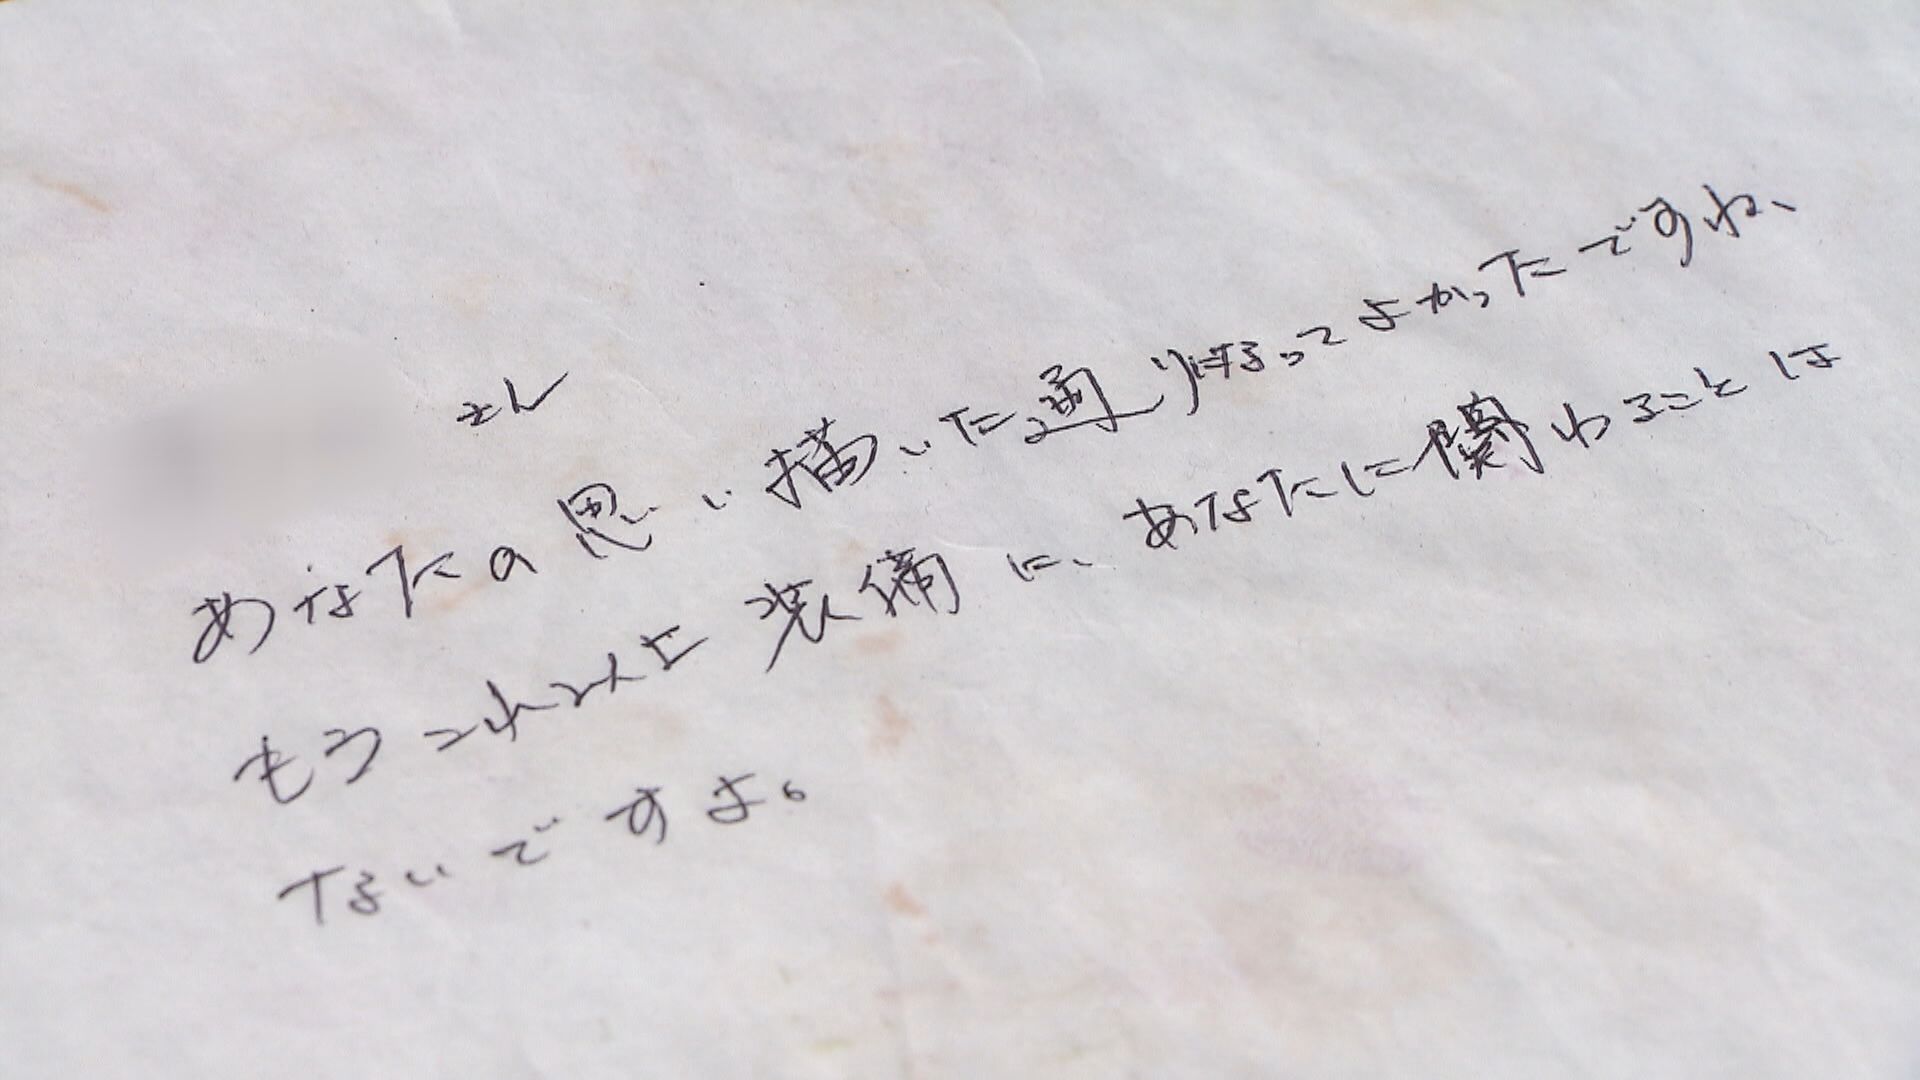 さん
あなたの思い描いた通りになってよかったですね、
もうこれ以上装備に、あなたに関わることは
ないですよ。